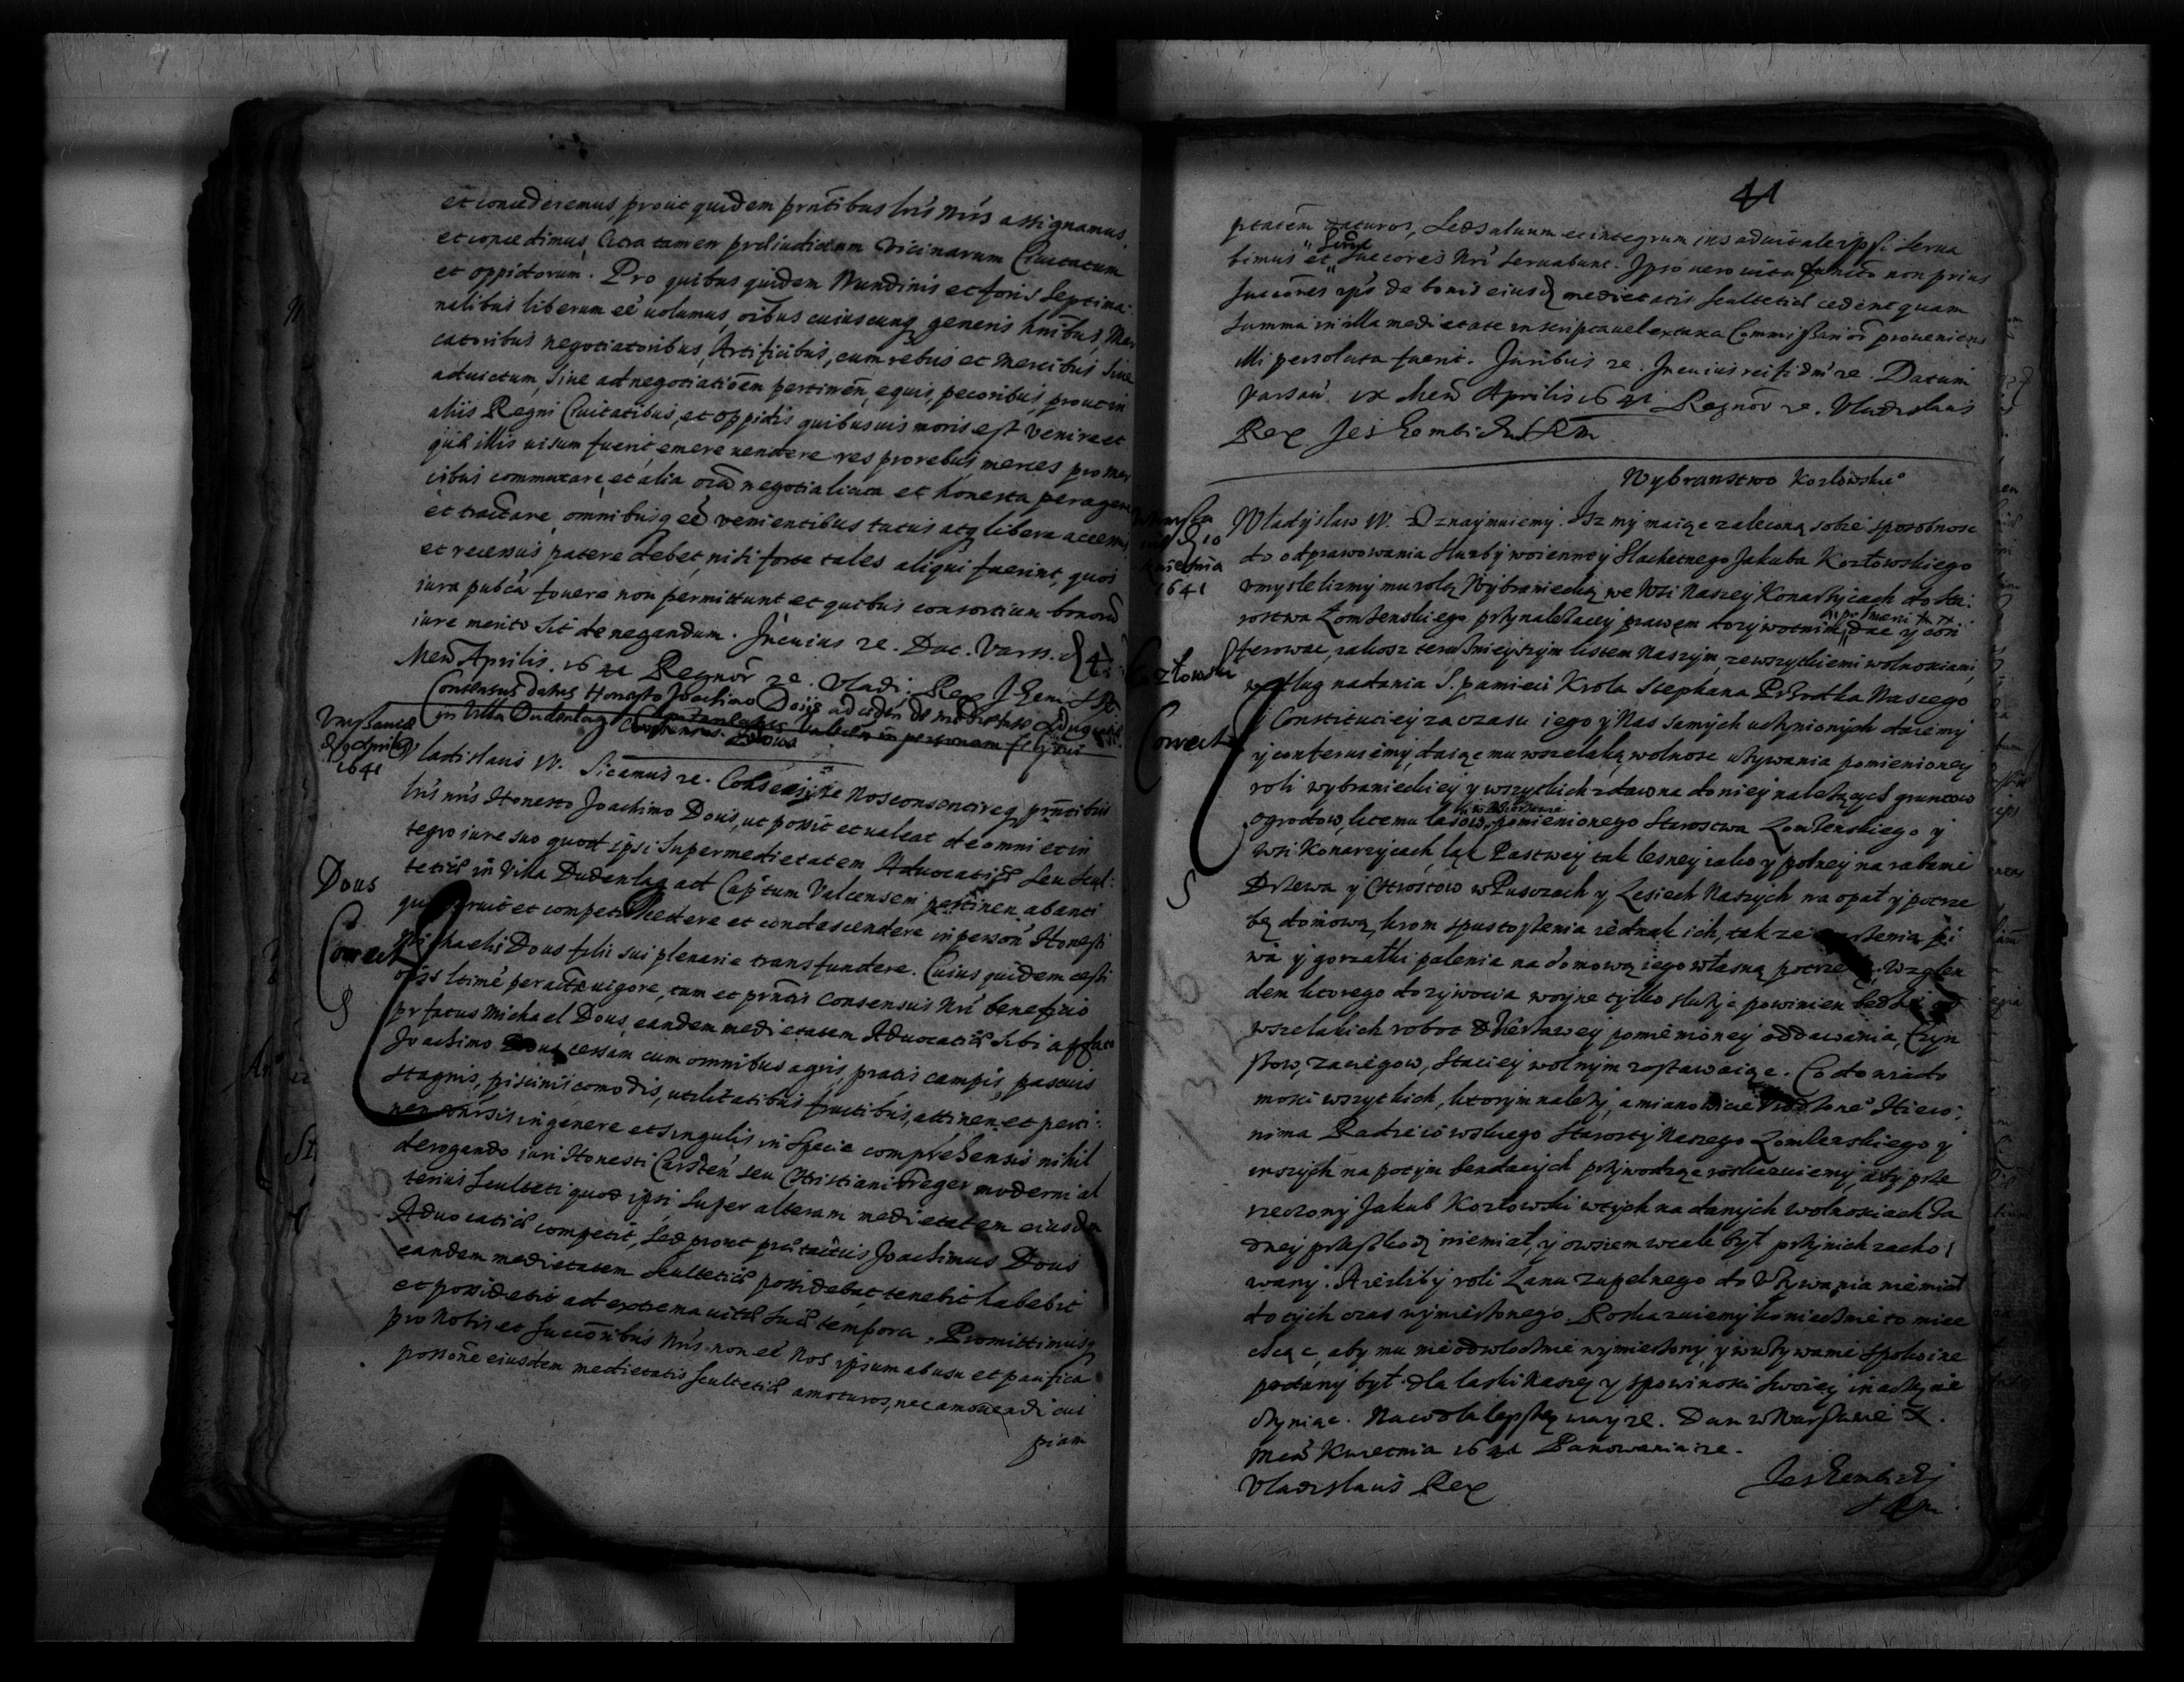 et concederemus, prout quidem prntibus lris nris assignamus
et concedimus, Citra tamen preiudicium vicinarum Civitatum
et oppidorum. Pro quibus quidem Nundinis et foris Septima-
nalibus liberum eẽ volumus, oibus cuiuscunq generis hoibus, Mer
catoribus negotiatoribus, Artificibus, cum rebus et mercibus sive
advictum, sive ad negotiatioem pertinen, equis, pecoribus, prout in
aliis Regni Civitatibus, et oppidis quibusvis moris est, venire et
illis visum fuerit, emere vendere res pro rebus merces pro mer
cibus commutare, et alia oia negotia licita et honesta peragere
et tractare, omnibusq eo venientibus tutus atq liber accessus
et recessus patere debet, nisi forte tales aliqui fuerint, quos
iura publca fovere non permittunt et quibus consortium bonorum
iure merito sit denegandum. In cuius re. Dat. Vars. d 4
Mens Aprilis 1641 Regnor re. Vladi: Rex
Consensus datus Honesto Joachimo Dois ad cedendum de medietate Advocatiae
in Villa Dudenlag
Consensus in personam filii sui
Warszawie
d 9 Aprilis
1641
Vladislaus IV. Sicamus re. Consensisse Nos consentireq prntibus
lris nris Honesto Joachimo Dous, ut possit et valeat de omni et in
tegro iure suo quod ipsi super medietatem Advocatiae seu scul-
tetiae in Villa Dudenlag ad Captum Valcensem pertinen, ab anti
quo servit et competit cedere et condescendere in person Honesti
Dous
Michaelis Dous filii sui plenarie transfundere. Cuius quidem cessi
Correct
ois ltime peractae vigore, tum et prntis consensus Nri beneficio
prfatus Michael Dous, eandem medietatem Advocatiae sibi a pfato
Joachimo Dous cessam cum omnibus agris, pratis campis, pascuis
stagnis, piscinis comodis, utilitatibus fructibus, attinen et perti-
nen uniᵛsis in genere et singulis in specie comprehensis nihil
derogando iuri Honesti Carsten seu Christiani Freger moderni al
terius Sculteti quod ipsi super alteram medietatem eiusdem
Advocatiae competit, sed prout prlimitatus Joachimus Dous
eandem medietatem scultetiae possidebat tenebit habebit
et possidebit ad extrema vitae suae tempora. Promittimusq
pro Nobis et Succoribus Nris non eẽ Nos ipsum ab usu et pacifica
possone eiusdem medietatis scultetiae amoturos, nec amovendi cui
piam
41
ptatem daturos, sed salvum et integrum ius advitale ipsi serva
bimus et Sermi Succores Nri servabunt. Ipso vero vita functo non prius
succores ips de bonis eiusd medietatis scultetiae cedent quam
summa in illa medietate inscripta vel ex taxa Commissarior proveniens
illi persoluta fuerit. Juribus re. In cuius rei fidm re. Datum
Varsav. IX Mens Aprilis 1641 Regnor re. Vladislaus
Rex
Wybranstwo Kozlowskie
Warszawa
d 10
Kwietnia
1641
Władysław IV. Oznaymuiemy. Isz my maiąc zaleconą sobie sposobnosc
do odprawowania sluzby woienney Slachetnego Jakuba Kozłowskiego
vmyslelismy mu rolą Wybraniecką we Wsi Naszey Konarzycach do Sta-
rostwa Łomzenskiego przynalezacey prawem dozywotnim, dac y con
ferowac, iakosz teraznieyszym listem Naszym, ze wszytkiemi wolnosciami
Kozłowski
według nadania S. pamieci Krola Stephana Przodka Naszego
Correct
y Constituciey za czasu iego y Nas samych uchynionych daiemy
y conferuiemy, daiąc mu wszelaką wolnosc uzywania pomienioney
roli wybranieckiey y wszytkich zdawna do niey nalezących gruntow
ogrodow, ktemu lasow pomienionego Starostwa Łomzenskiego y
Wsi Konarzycach, łąk Pastwey tak lesney iako y polney na rabanie
Drzewa y Chrostow w Puszczach y Lesiech Naszych na opał y potrze
bę domową, krom spustoszenia iednak ich, takze warzenia pi
wa y gorzałki palenia na domową iego własną potrzebę. Wzglen
dem ktorego dozywocia woyne tylko sluzyc powinien bedzie od
wszelakich robot Dzierzawcy pomienioney oddawania, Czyn
szow, zaciągow, Staciey wolnym zostawaiąc. Co do wiado
mosci wszytkich, ktorym nalezy, a mianowicie Vrodzone Hiero-
nima Radzieiowskiego Starosty Naszego Łomzenskiego y
inszych na potym bendących przywodząc roskazuiemy, aby prze
rzeczony Jakub Kozłowski wtych nadanych wolnosciach za
dney przeszkody niemiał, y owszem wcale był przy nich zacho
wany. A iesliby roli Łanu zupełnego do vzywania niemiał
do tych czas wymierzonego. Roskazuiemy koniecznie to miec
chcąc, aby mu nieodwłocznie wymierzony y w uzywanie spokoine
podany był. dla łaski Naszey y spowinnosci swoiey inaczey nie
czyniąc. Na co dla lepszey wagi re. Dan w Warszawie X.
Mens Kwietnia 1641 Panowania re.
Vladislaus Rex